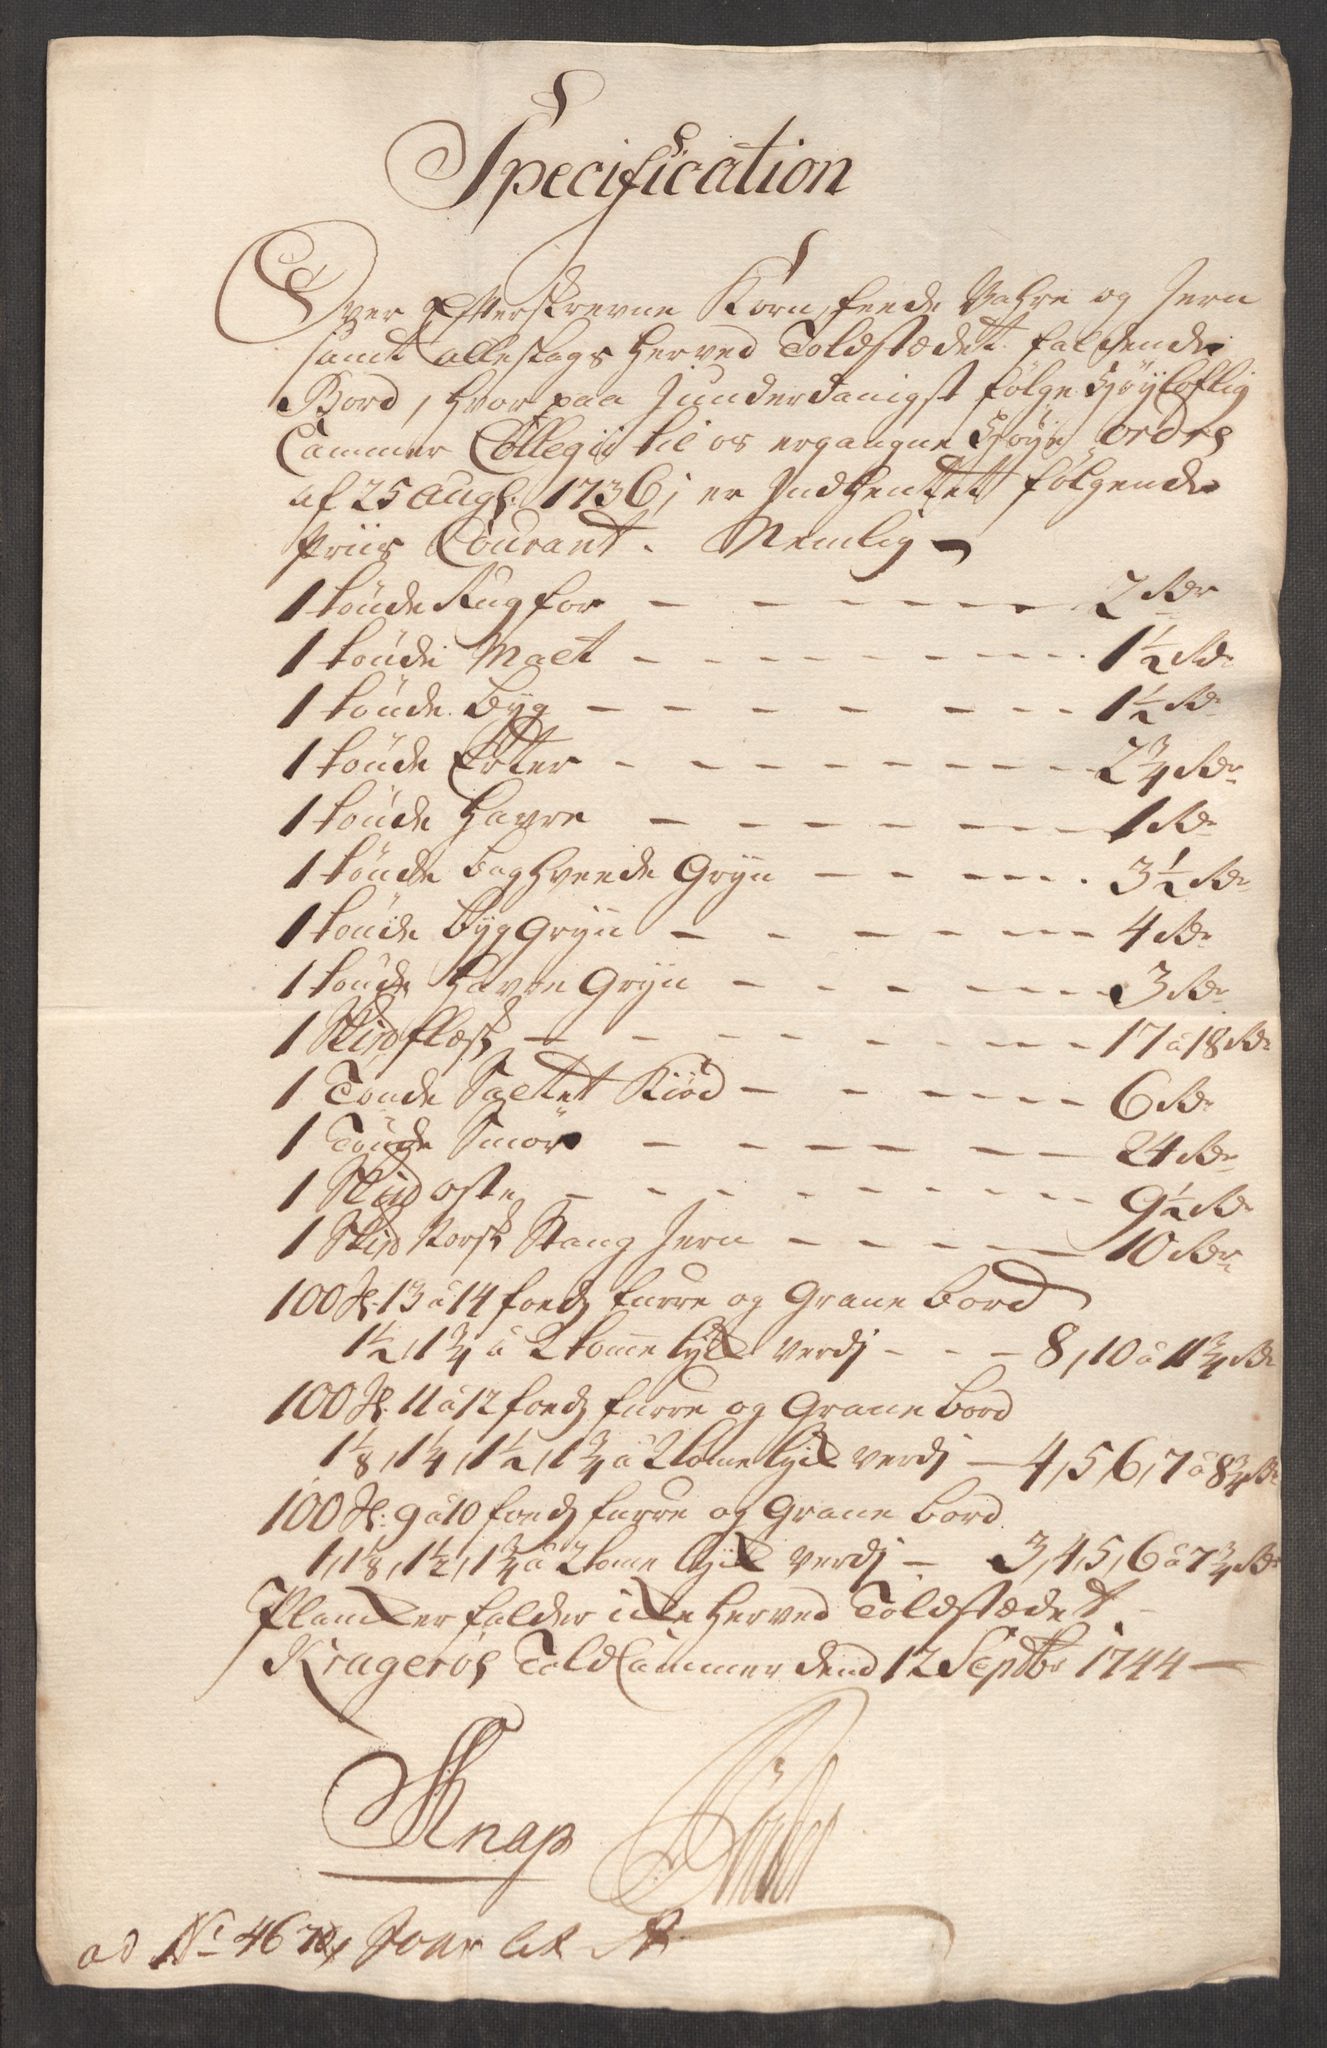 Specification
Over Efterskrevne Korn, feede Vahre og Jern
samt alleslags herved Toldstædet faldende
Bord, hvor paa Junderdanigst følge Høyloflig
Cammer Collegii til os ergangne Høye ordre
af 25 Aug: 1736, er Indhentet følgende
Priis Courant. Nemlig
1 tönde Rug for - - - - - - 2 Rdr
1 tönde Malt - - - - - - 1½ Rdr
1 tönde Byg - - - - - - 1½ Rdr
1 tönde Erter - - - - - - 2¾ Rdr
1 tönde Havre - - - - - - 1 Rdr
1 tönde Boghveede Gryn - - - - - 3½ Rdr
1 tönde Byg Gryn - - - - - - 4 Rdr
1 tönde Havre Gryn - - - - - 3 Rdr
1 Skipd flesk - - - - - - 17 a 18 Rdr
1 Tönde Saltet Kiöd - - - - - 6 Rdr
1 Tönde Smör - - - - - - 24 Rdr
1 Skipd oste - - - - - - 9½ Rdr
1 Skipd Norsk Stang Jern - - - - 10 Rdr
100 St: 13 a 14 foeds furre og Grane bord
1½, 1¾ a 2 tomme tyk verdj - - - 8, 10 a 11¾ Rdr
100 St: 11 a 12 foeds furre og Grane bord
1⅛, 1¼, 1½, 1¾ a 2 tome tyk verdj - 4, 5, 6, 7 a 8¾ Rdr
100 St: 9 a 10 foeds furre og Grane bord
1, 1⅛, 1½, 1¾ a 2 tome tyk verdj - 3, 4, 5, 6 a 7¾ Rdr
Plancker falder icke herved Toldstædet
Kragerøe Told Cammer dend 12 Septbr 1744
Knap
ad No 467